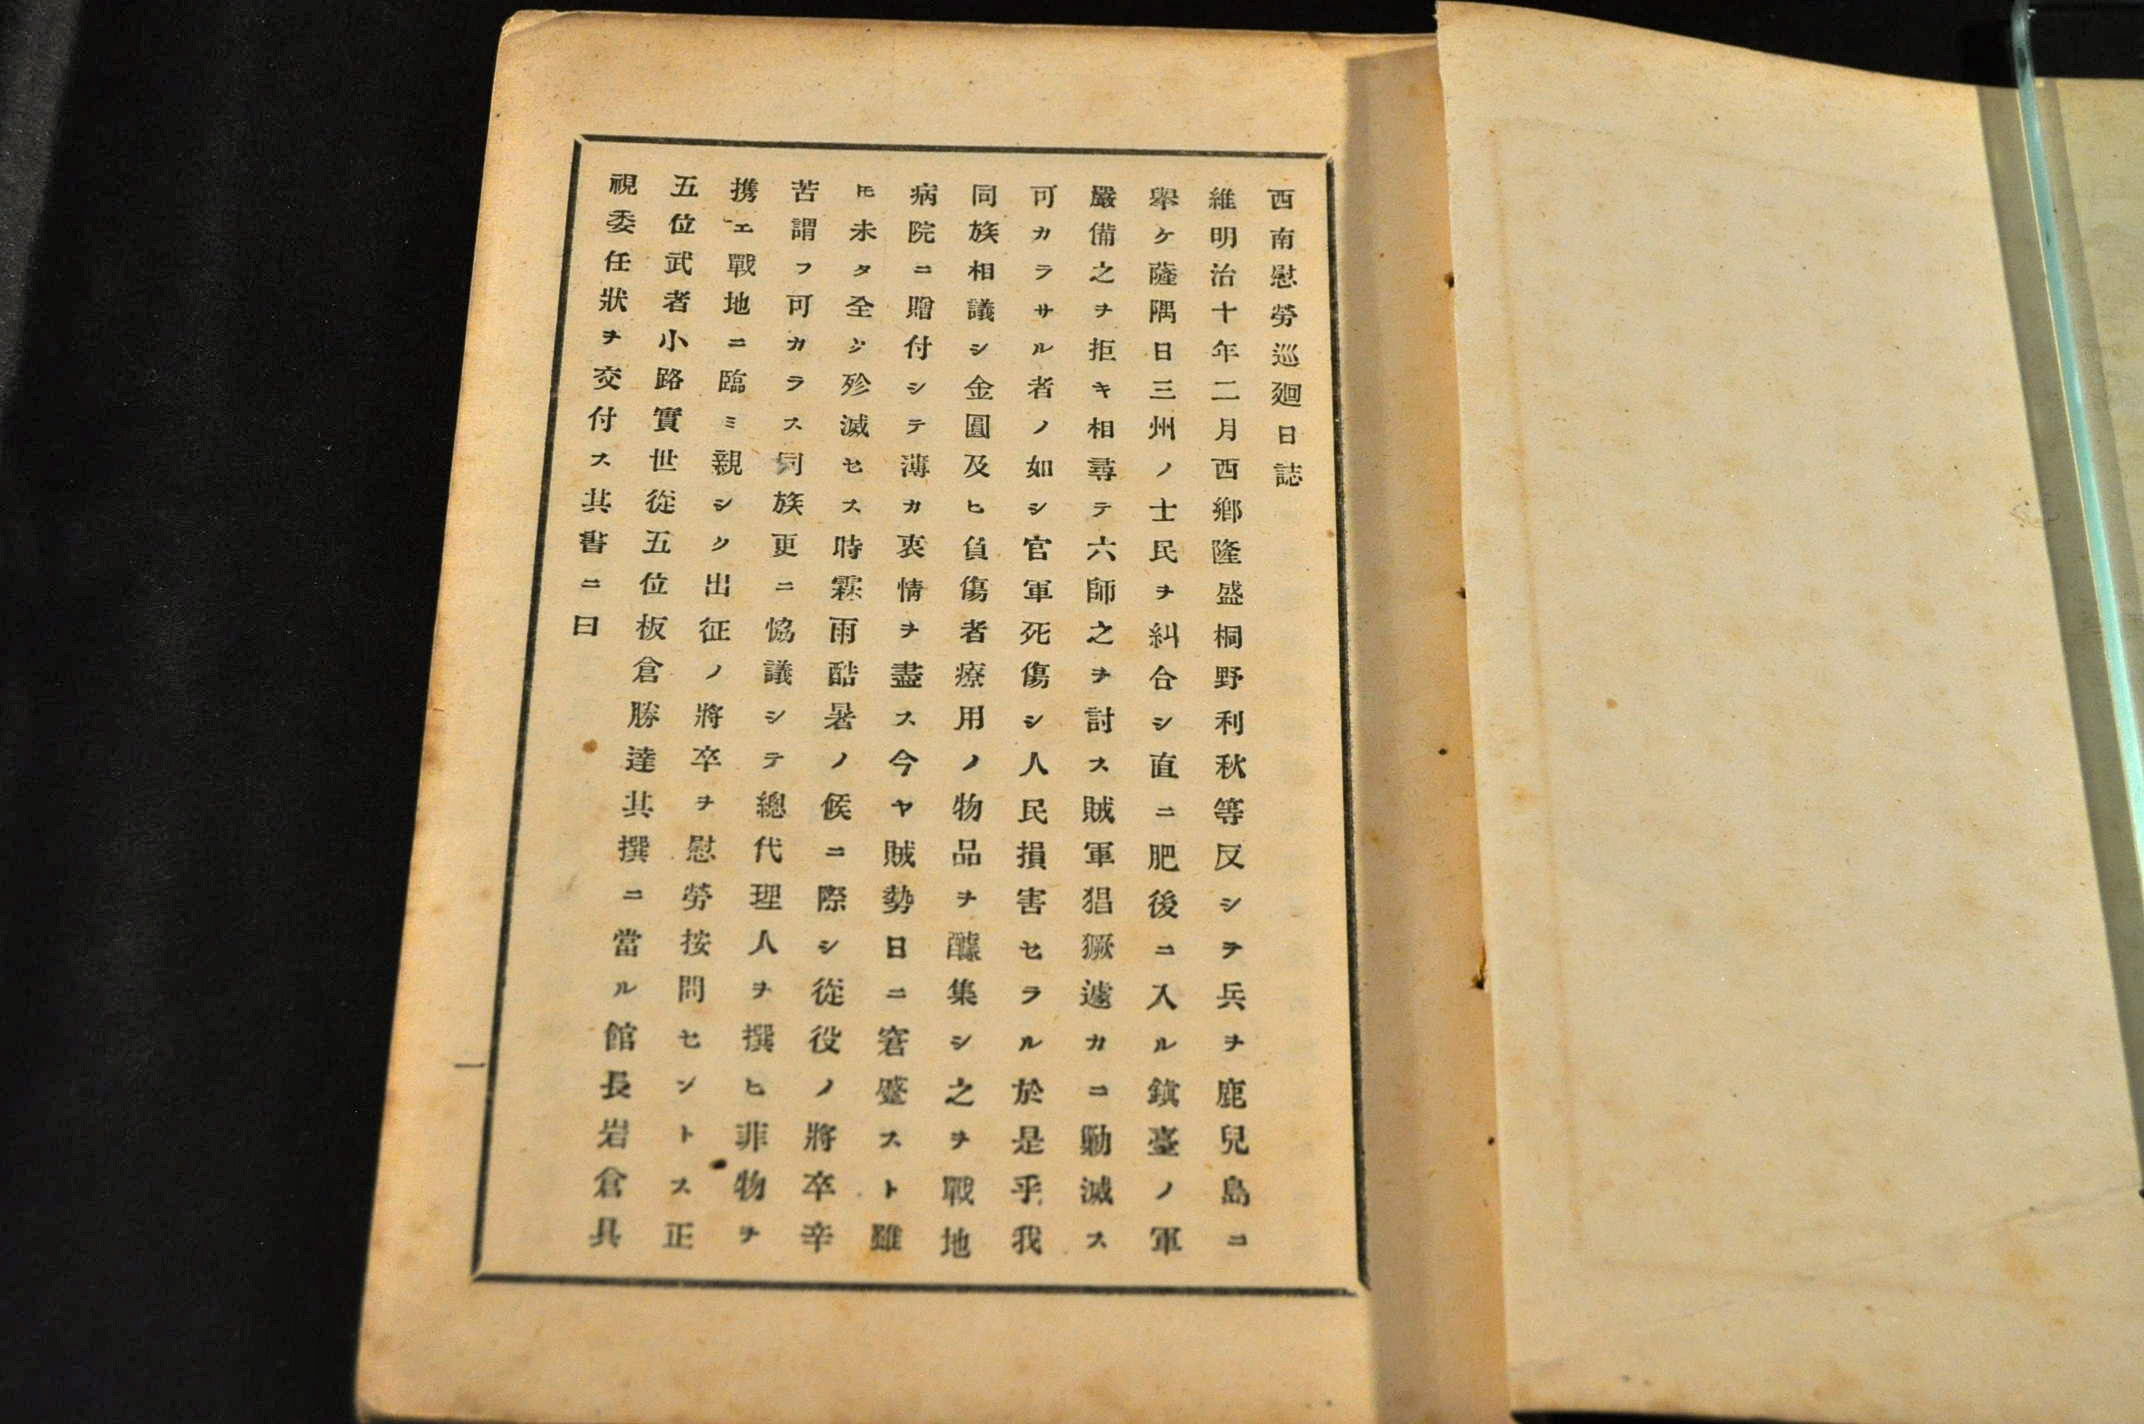 西南慰勞巡廻日誌
維明治十年二月西鄉隆盛桐野利秋等反シヲ兵ヲ鹿兒島ニ
擧ケ薩隅日三州ノ士民ヲ糾合シ直ニ肥後ニ入ル鎭臺ノ軍
嚴備之ヲ拒キ相尋テ六師之ヲ討ス賊軍猖獗遽カニ勦滅ス
可カラサル者ノ如シ官軍死傷シ人民損害セラル於是乎我
同族相議シ金圓及ヒ負傷者療用ノ物品ヲ醵集シ之ヲ戰地
病院ニ贈付シテ薄カ衷情ヲ盡ス今ヤ賊勢日ニ窘蹙スト雖
ㇳモ未タ全ク殄滅セス時霖雨酷暑ノ候ニ際シ從役ノ將卒辛
苦謂フ可カラス同族更ニ恊議シテ總代理人ヲ撰ヒ菲物ヲ
携エ戰地ニ臨ミ親シク出征ノ將卒ヲ慰勞按問セントス正
五位武者小路實世從五位板倉勝達其撰ニ當ル館長岩倉具
視委任狀ヲ交付ス其書ニ曰
一